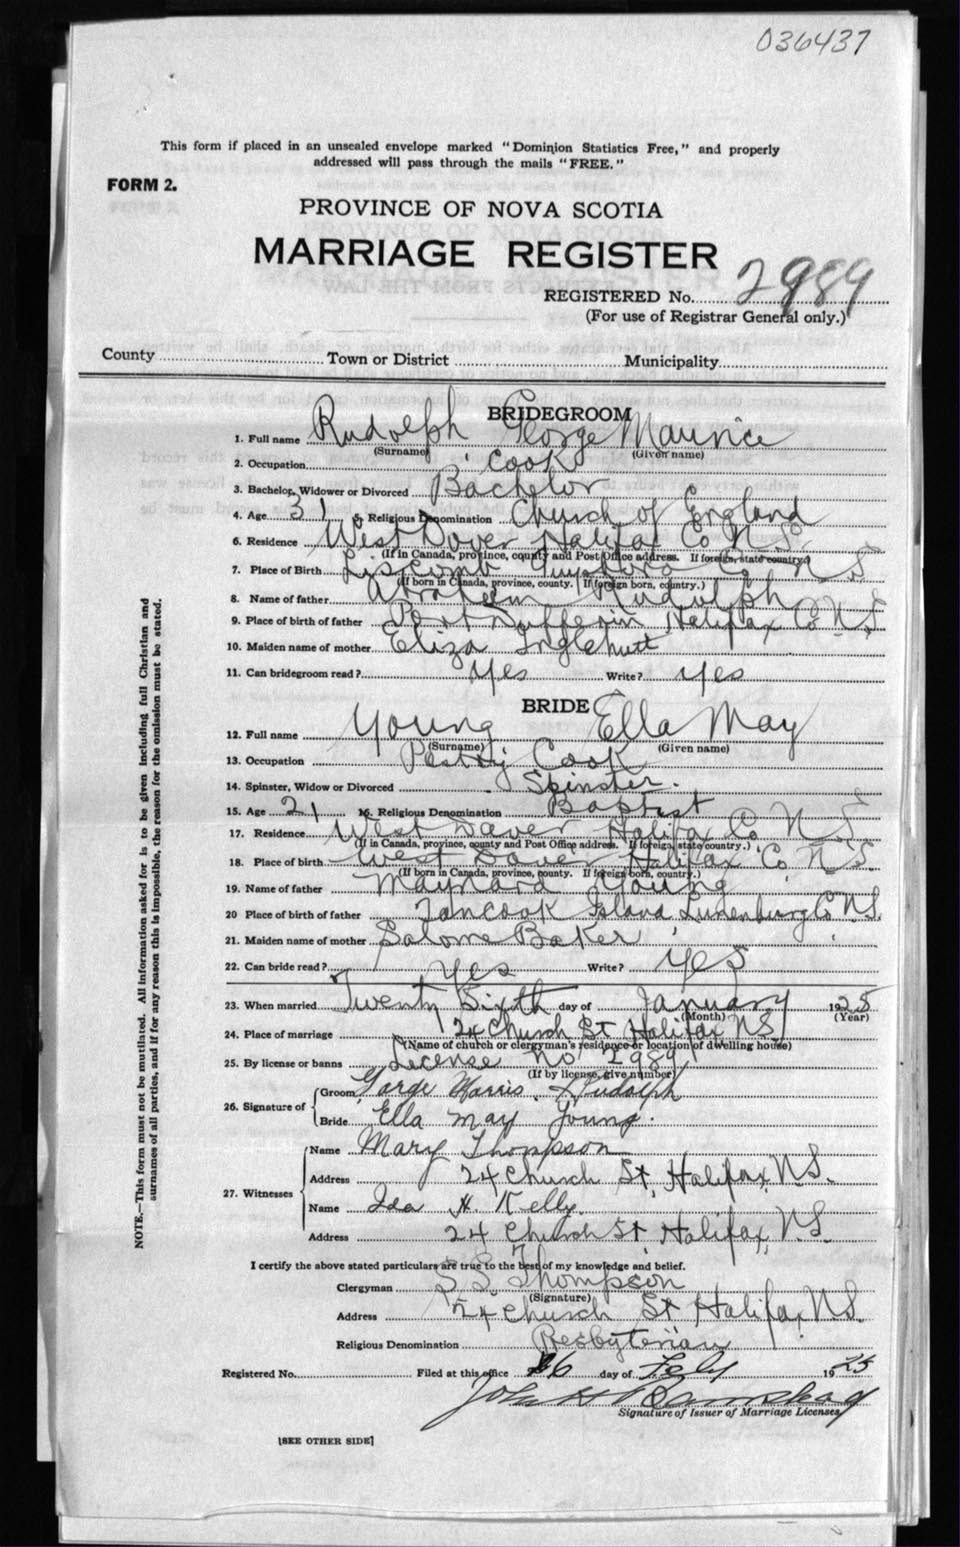 036437
This form if placed in an unsealed envelope marked "Dominion Statistics Free," and properly
addressed will pass through the mails "FREE."
FORM 2.
PROVINCE OF NOVA SCOTIA
MARRIAGE REGISTER
REGISTERED No. 2989
(For use of Registrar General only.)
County Town or District Municipality
BRIDEGROOM
1. Full name Rudolph George Maurice
(Surname) (Given name)
2. Occupation Cook
3. Bachelor, Widower or Divorced Bachelor
4. Age 31 5. Religious Denomination Church of England
6. Residence West Dover Halifax Co N.S.
(If in Canada, province, county and Post Office address. If foreign, state country.)
7. Place of Birth Liscomb Guysboro Co N S
(If born in Canada, province, county. If foreign born, country.)
8. Name of father Abraham Rudolph
9. Place of birth of father Port Dufferin Halifax Co N S
10. Maiden name of mother Eliza
11. Can bridegroom read? Yes Write? yes
BRIDE
12. Full name Young Ella May
(Surname) (Given name)
13. Occupation Pastry Cook
14. Spinster, Widow or Divorced Spinster.
15. Age 21 16. Religious Denomination Baptist
17. Residence West Dover Halifax Co N S
(If in Canada, province, county and Post Office address. If foreign, state country.)
18. Place of birth West Dover Halifax Co N S.
(If born in Canada, province, county. If foreign born, country.)
19. Name of father Maynard Young
20 Place of birth of father Tancook Island Lunenburg Co. N.S.
21. Maiden name of mother Salome Baker
22. Can bride read? Yes Write? Yes
23. When married Twenty Sixth day of January 1925
(Month) (Year)
24. Place of marriage 24 Church St Halifax N S
(Name of church or clergyman's residence or location of dwelling house)
25. By license or banns License No 2989
(If by license, give number)
26. Signature of Groom Gorge Morris Rudolph
Bride Ella May Young.
27. Witnesses Name Mary Thompson
Address 24 Church St, Halifax, N.S.
Name Ida H. Kelly.
Address 24 Church St, Halifax, N.S.
I certify the above stated particulars are true to the best of my knowledge and belief.
Clergyman S. S. Thompson
(Signature)
Address 24 Church St Halifax N.S.
Religious Denomination Presbyterian
Registered No. Filed at this office 6 day of Feby 1925
John H
Signature of Issuer of Marriage Licenses
[SEE OTHER SIDE]
NOTE.—This form must not be mutilated. All information asked for is to be given including full Christian and
surnames of all parties, and if for any reason this is impossible, the reason for the omission must be stated.